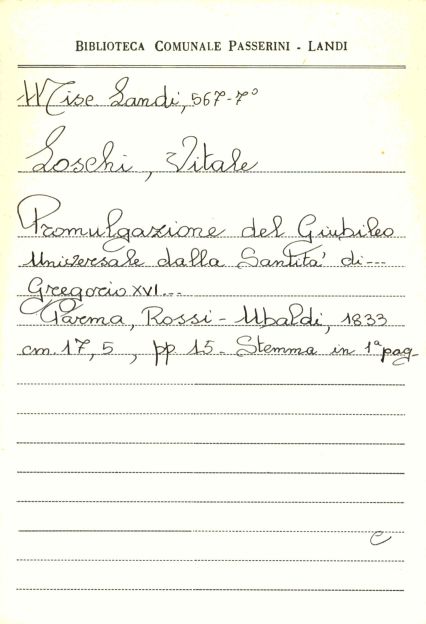 BIBLIOTECA COMUNALE PASSERINI - LANDI
Misc Landi, 567-7°
Loschi, Vitale
Promulgazione del Giubileo
Universale dalla Santità di---
Gregorio XVI...
Parma, Rossi-Ubaldi, 1833
cm. 17,5, pp 15. Stemma in 1ª pag.
e